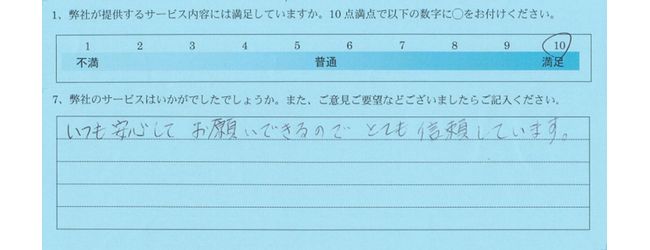 1、弊社が提供するサービス内容には満足していますか。10点満点で以下の数字に○をお付けください。
1 2 3 4 5 6 7 8 9 10
不満 普通 満足
7、弊社のサービスはいかがでしたでしょうか。また、ご意見ご要望などございましたらご記入ください。
いつも安心して お願いできるので とても信頼しています。